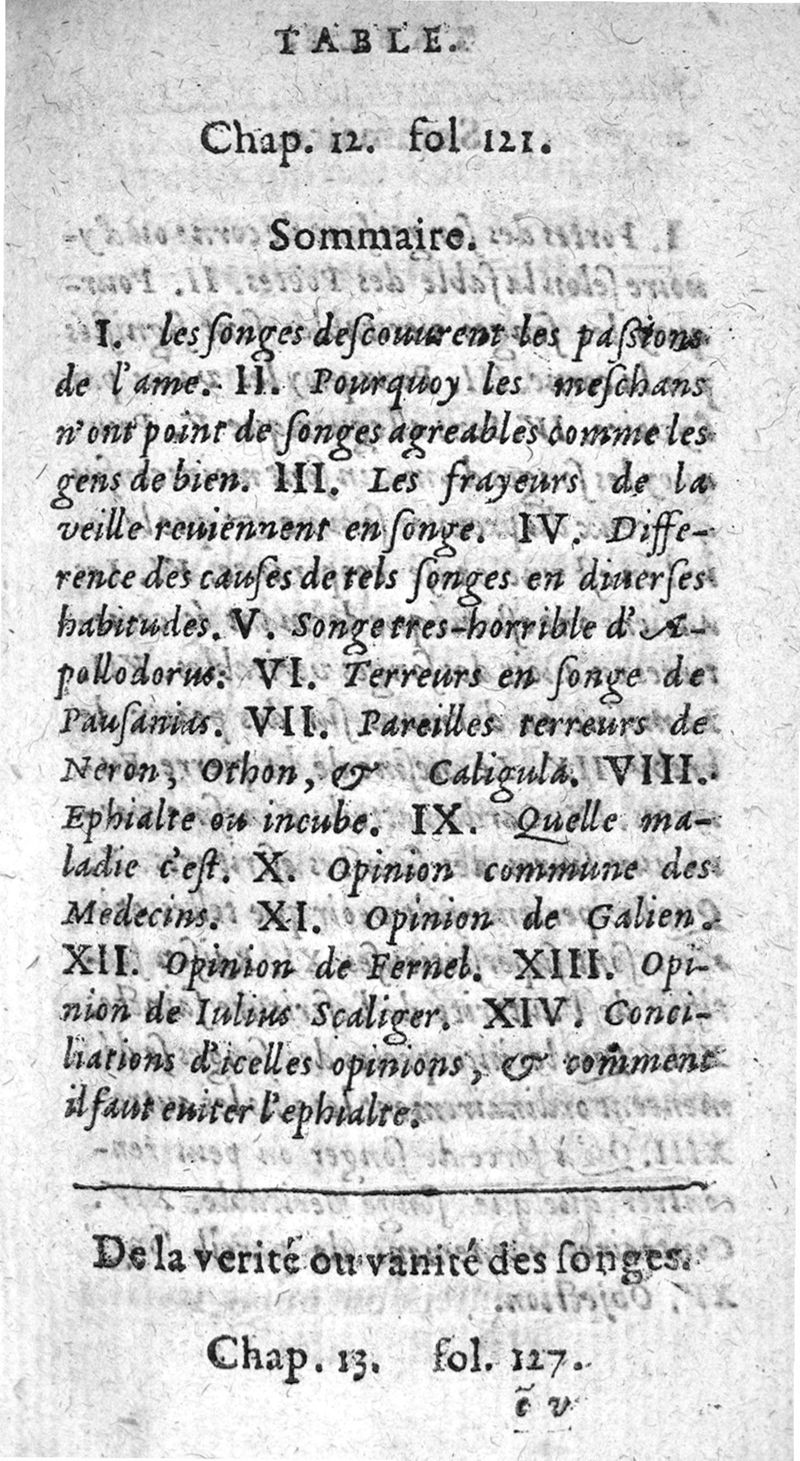 TABLE.
Chap. 12. fol 121.
Sommaire.
I. les ſonges deſcouurent les paſsions
de l'ame. II. Pourquoy les meſchans
n'ont point de ſonges agreables comme les
gens de bien. III. Les frayeurs de la
veille reuiennent en ſonge. IV. Diffe-
rence des cauſes de tels ſonges en diuerſes
habitudes. V. Songe tres-horrible d'A-
pollodorus. VI. Terreurs en ſonge de
Pauſanias. VII. Pareilles terreurs de
Neron, Othon, & Caligula. VIII.
Ephialte ou incube. IX. Quelle ma-
ladie c'eſt. X. Opinion commune des
Medecins. XI. Opinion de Galien.
XII. Opinion de Fernel. XIII. Opi-
nion de Iulius Scaliger. XIV. Conci-
liations d'icelles opinions, & comment
il faut euiter l'ephialte.
De la verité ou vanité des ſonges.
Chap. 13. fol. 127.
ẽ v